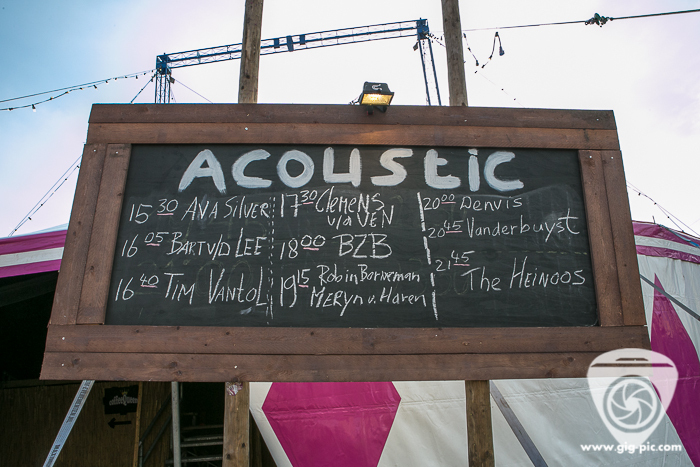 ACOUStIC
15 30 AVA SILVER
16 05 BARTV/D LEE
16 40 TIM VANTOL
17 30 Clemens
v/d VEN
18 00 BZB
19 15 Robin Borneman
MERYN v. Haren
20 00 Denvis
20 45 Vanderbuyst
21 45
The HEINOOS
www.gig-pic.com